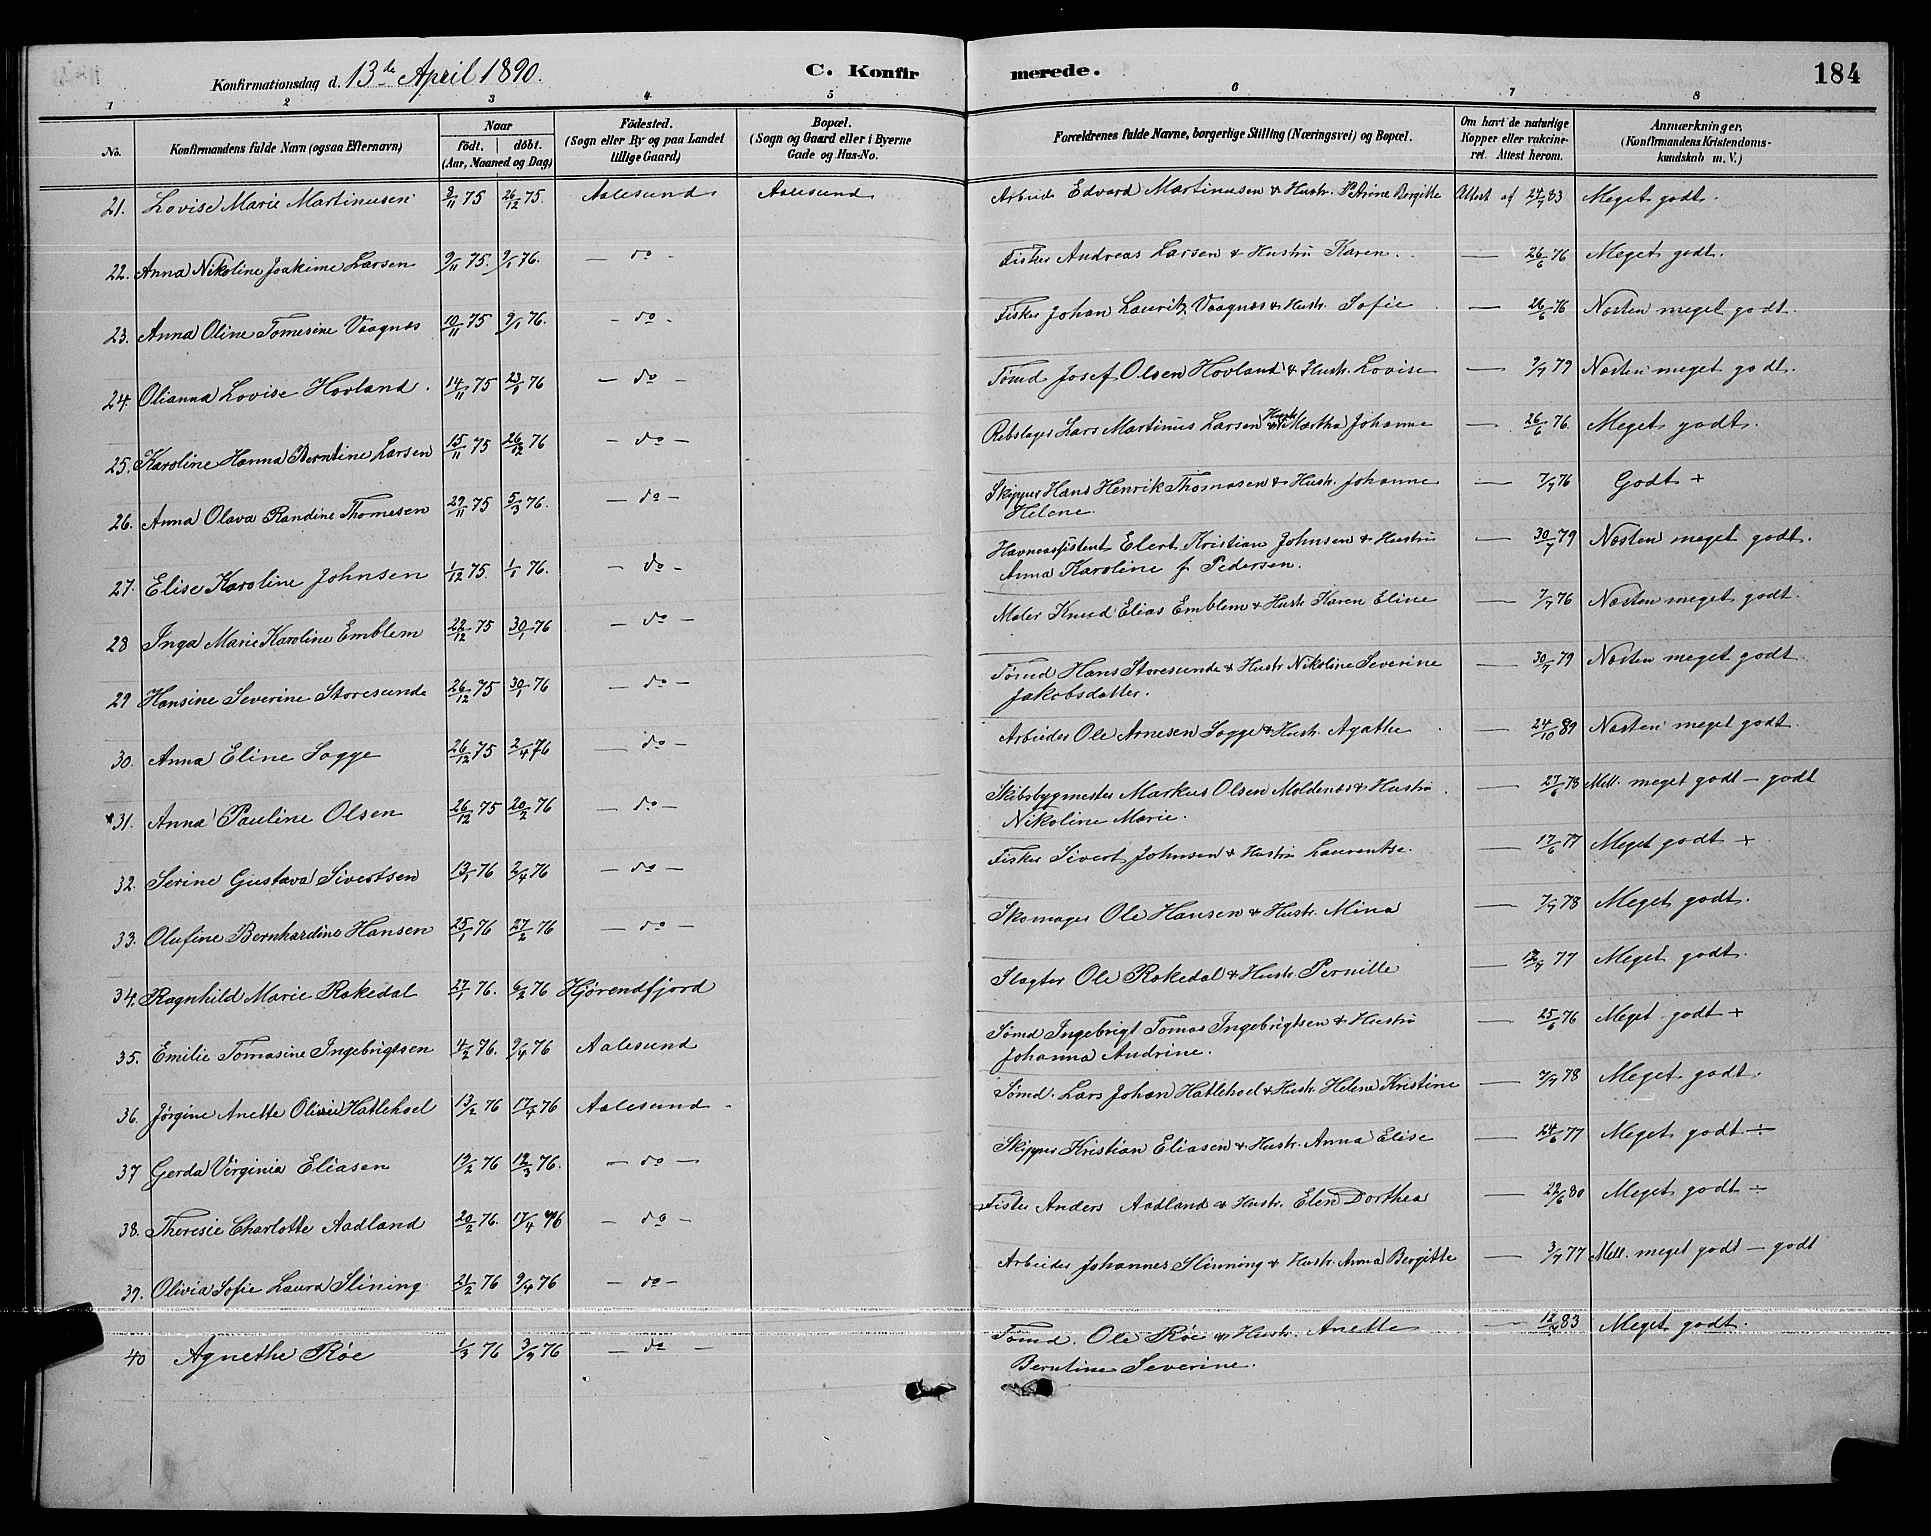 Konfirmationsdag d. 13de April 1890. C. Konfirmerede. 184
1 2 3 4 5 6 7 8
No. Konfirmandens fulde Navn (ogsaa Efternavn) Naar födt. döbt. (Aar, Maaned og Dag) Födested. (Sogn eller By og paa Landet tillige Gaard) Bopæl. (Sogn og Gaard eller i Byerne Gade og Hus-No. Forældrenes fulde Navne, borgerlige Stilling (Næringsvei) og Bopæl. Om havt de naturlige Kopper eller vakcineret. Attest herom. Anmærkninger. (Konfirmandens Kristendomskundskab m. V.)
21. Lovise Marie Martinusen 9/11 75 26/12 75. Aalesund Aalesund Arbeider Edvard Martinusen & Hustr. Petrine Bergitte Attest af 24/7 83 Meget godt.
22. Anna Nikoline Joakime Larsen 9/11 75. 9/1 76. - do - Fisker Andreas Larsen & Hustru Karen. — 26/6 76 Meget godt.
23. Anna Oline Tomesine Vaagnes 10/11 75 9/1 76. - do - Fisker Johan Lauritz Vaagnes & Hustr. Sofie — 26/6 76 Næsten meget godt.
24. Olianna Lovise Hovland. 14/11 75 23/1 76 - do - Tømd Josef Olsen Hovland & Hustr. Lovise — 9/7 79 Næsten meget godt.
25. Karoline Hanna Berntine Larsen 15/11 75 26/12 76 - do - Rebslager Lars Martinus Larsen & Hustr. Martha Johanne — 26/6 76 Meget godt.
26. Anna Olava Randine Thomesen 29/11 75 5/3 76. - do - Skipper Hans Henrik Thomasen & Hustr. Johanne — 7/7 76 Godt +
Helene.
27. Elise Karoline Johnsen 1/12 75. 1/1 76. - do - Havneassistent Elert Kristian Johnsen & Hustru — 30/7 79 Næsten meget godt.
Anna Karoline f. Pedersen.
28 Inga Marie Karoline Emblem 22/12 75 30/1 76 - do - Maler Knud Elias Emblem & Hustr Karen Eline — 7/7 76 Næsten meget godt.
29 Hansine Severine Storesunde 26/12 75 30/1 76 - do - Tømd Hans Storesunde & Hustr Nikoline Severine — 30/7 79 Næsten meget godt
Jakobsdatter.
30. Anna Eline Sogge 26/12 75 2/4 76 - do - Arbeider Ole Arnesen Sogge & Hustr. Agathe — 24/10 89 Næsten meget godt.
31. Anna Pauline Olsen 26/12 75 20/2 76 - do - Skibsbygmester Markus Olsen Moldenæs & Hustru — 27/6 78 Mell. meget godt - godt
Nikoline Marie.
32. Serine Gustava Sivertsen 13/1 76 2/4 76 - do - Fisker Sivert Johnsen & Hustru Laurentse. — 17/6 77 Meget godt +
33. Olufine Bernhardine Hansen 25/1 76 27/2 76 - do - Skomager Ole Hansen & Hustr. Mina — 7/7 78 Meget godt.
34. Ragnhild Marie Rakedal 27/1 76. 6/2 76 Hjørendfjord Slagter Ole Rakedal & Hustr Pernille — 12/7 77 Meget godt.
35. Emilie Tomasine Ingebrigtsen 4/2 76. 9/4 76 Aalesund Sømd Ingebrigt Tomas Ingebrigtsen & Hustru — 25/6 76 Meget godt +
Johanna Andrine.
36. Jørgine Anette Olivie Hatlehoel 13/2 76 17/4 76 Aalesund Sømd. Lars Johan Hatlehoel & Hustr Helene Kristine — 7/7 78 Meget godt.
37 Gerda Virginia Eliasen 13/2 76 12/3 76. - do - Skipper Kristian Eliasen & Hustr. Anna Elise — 24/6 77 Meget godt ÷
38. Theresie Charlotte Aadland 20/2 76. 17/4 76 - do - Fisker Anders Aadland & Hustr. Elen Dorthea — 22/6 80 Meget godt ÷
39. Olivia Sofie Laura Slining. 21/2 76 9/4 76 - do - Arbeider Johannes Slinning & Hustr. Anna Bergitte — 3/7 77 Mell. meget godt - godt
40 Agnethe Røe 1/3 76 3/9 76 - do - Tømd. Ole Røe & Hustr. Anette — 12/7 83 Meget godt.
Berntine Severine.